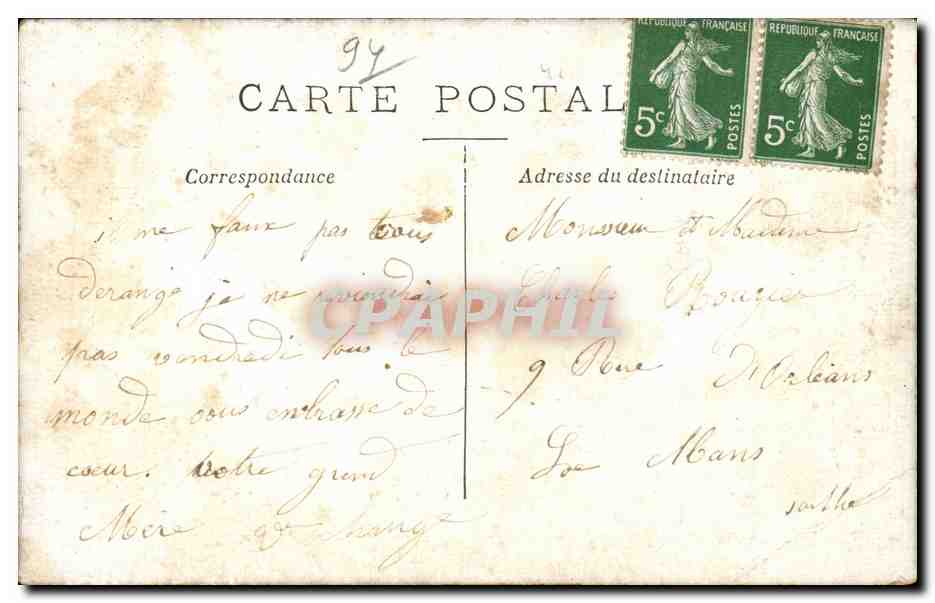 94
CARTE POSTAL
RÉPUBLIQUE FRANÇAISE
5c
POSTES
RÉPUBLIQUE FRANÇAISE
5c
POSTES
Correspondance
il me faux pas vous
derange je ne reviendrai
pas vendredi tous le
monde vous enbrasse de
cœur. votre grand
Mère
Adresse du destinataire
Monsieur et Madame
Charles Rougier
9 Rue D'Orléans
Le Mans
sarthe
CPAPHIL